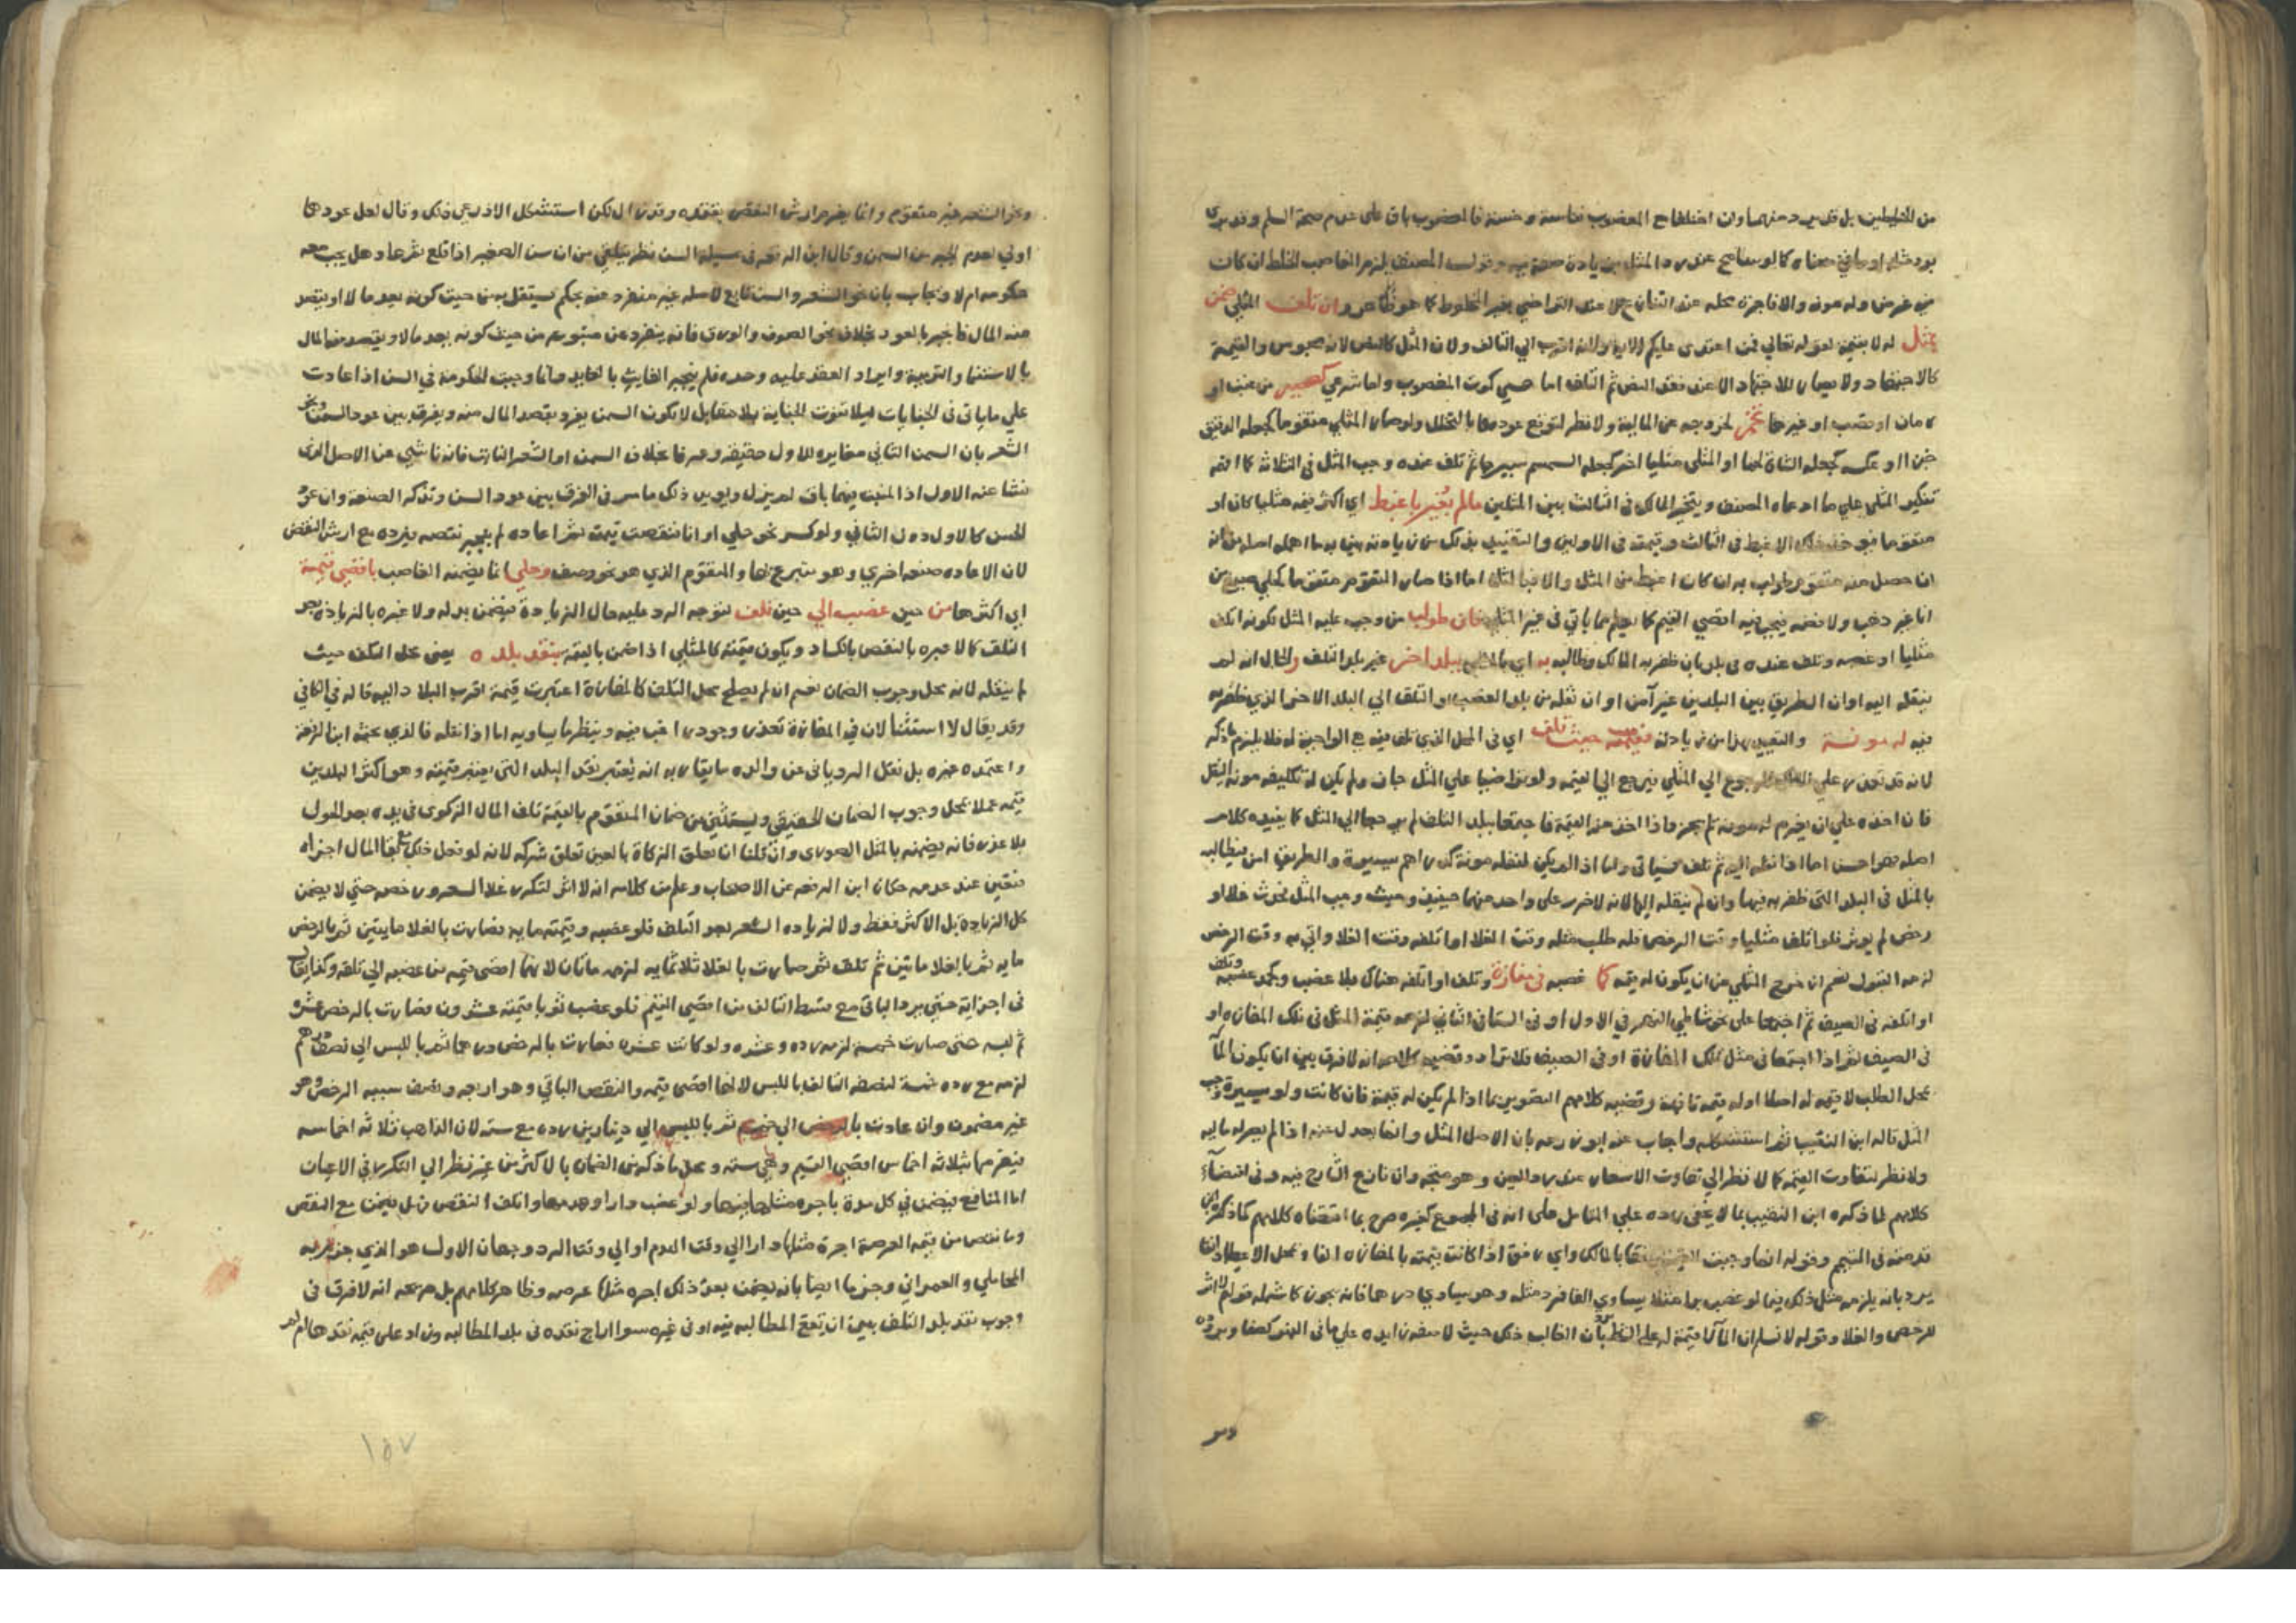 من المثليين بل قد يرد منهما وان اختلفا مع المغصوب نفاسة وخسة فالمغصوب باق على عدم صحة السلم وقد يرى
برد مثله او ما في معناه كما لو سامح عند رد المثل بزيادة وقول المصنف يلزم الغاصب الخلط ان كان
من غرض وله مونه والا فاجرة محله عند التنازع لا عند التراضي بغير المخلوط كما هو ظاهر وان تلف المثلي ضمن
بمثل له لا بقيمة لقوله تعالي فمن اعتدى عليكم الاية ولانه اقرب الي التالف ولان المثل كالنص لانه محسوس والقيمة
كالاجتهاد ولا يصار للاجتهاد الا عند فقد النص ثم التلف اما حسي كموت المغصوب واما شرعي كعصير من عنب او
رمان او قصب او غيرها تخمر لخروجه عن المالية ولا نظر لتوقع عودها بالتخلل ولو صار المثلي متقوما كجعله الدقيق
خبزا او عكسه كجعله الشاة لحما او المثلي مثليا اخر كجعله السمسم سيرجا ثم تلف عنده وجب المثل في الثلاثة كما افهمه
تنكير المثلي علي ما ادعاه المصنف ويتخير المالك في الثالث بين المثلين ما لم يتغير باغبط اي اكثر قيمة مثليا كان او
متقوما فيوخذ ذلك الاغبط في الثالث وقيمته في الاولين والتقييد بذلك من زيادته بين به ما اهمله اصله من انه
ان حصل منه متقوم طولب به ان كان اغبط من المثل والا فبالمثل اما اذا صار المتقوم متقوما كحلي صيغ من
انا غير ذهب ولا فضة فيجب فيه اقصي القيم كما يعلم مما ياتي في غير المثلي فان طولب من وجب عليه المثل لكونه اتلف
مثليا او غصبه وتلف عنده في بلد بان ظفر به المالك وطالبه به اي بالمثلي ببلد اخر غير بلد التلف والحال انه لم
ينقله اليه او ان الطريق بين البلدين غير آمن او ان نقله من بلد الغصب او التلف الي البلد الاخر الذي ظفر به
فيه له مونة والتقييد بهذا من زيادته فقيمته حيث تلف اي في المحل الذي تلف فيه هي الواجبة له فلا يلزم ما ذكر
لانه قد تعذر علي المالك الرجوع الي المثلي فيرجع الي القيمة ولو تراضيا علي المثل جاز ولم يكن له تكليفه مونة النقل
فان اخذه علي ان يغرم له مونة لم يجز واذا اخذ منه القيمة فاجتمعا ببلد التلف لم يرجعا الي المثل كما يفيده كلام
اصله فهو احسن اما اذا نقله اليه ثم تلف فسياتي واما اذا لم يكن لنقله مونة كدراهم يسيرة والطريق امن فيطالبه
بالمثل في البلد التي ظفر به فيها وان لم ينقله اليها لانه لا ضرر على واحد منهما حينئذ وحيث وجب المثل فحدث غلا او
رخص لم يوثر فلو اتلف مثليا وقت الرخص فله طلب مثله وقت الغلا او اتلفه وقت الغلا واتي به وقت الرخص
لزمه القبول نعم ان خرج المثلي عن ان يكون له قيمة كما غصبه في مفازة وتلف او اتلفه هناك بلا غصب وكجمد غصبه وتلف
او اتلفه في الصيف ثم اجتمعا على نحو شاطي النهر في الاول او في الشتا في الثاني لزمه قيمة المثل في تلك المفازة او
في الصيف نعم اذا اجتمعا في مثل تلك المفازة او في الصيف فلا تراد وقضية كلامه انه لا فرق بين ان يكون الما
بمحل الطلب لا قيمة له اصلا او له قيمة تافهة وقضية كلامهم التصوير بما اذا لم يكن له قيمة فان كانت ولو يسيرة وجب
المثل قاله ابن النقيب ثم استشكله واجاب عنه ابو زرعة بان الاصل المثل وانما يعدل عنه اذا لم يصر له مالية
ولا نظر لتفاوت القيمة كما لا نظر الي تفاوت الاسعار عند رد العين وهو متجه وان نازع الشارح فيه وفي اقتضاء
كلامهم لما ذكره ابن النقيب بما لا يخفى رده علي المتامل على انه في المجموع كغيره صرح بما اقتضاه كلامهم كما ذكره ابن
رد بانه يلزمه مثل ذلك فيما لو غصب برا مثلا يساوي الفا فرد مثله وهو يساوي درهما فانه يجوز كما شمله قولهم لا اثر
للرخص والغلا وقوله لا نسلم ان الما لا قيمة له على الشط بان الغالب ذلك حيث لا صفة زايده علي ما في النهر كصفا وبرودة
وبر

ونحو الشعر غير متقوم وانما يغرم ارش النقص بفقده وقد زال لكن استشكل الاذرعي ذلك وقال لعل عودها
اولي لعدم الجبر من السمن وقال ابن الرفعة في مسيلة السن نظر يتلقى من ان سن الصغير اذا قلع ثم عاد هل يجب معه
حكومة ام لا ويجاب بان نحو الشعر والسن تابع لاصله غير منفرد عنه بحكم يستقل به من حيث كونه يعد مالا او يقصد
منه المال فاجبر بالعود بخلاف نحو الصوف والورق فانه ينفرد عن متبوعه من حيث كونه يعد مالا ويقصد منه المال
بالاستنما والتربية وايراد العقد عليه وحده فلم ينجبر الفايت بالعايد وانما وجبت الحكومة في السن اذا عادت
علي ما ياتي في الجنايات ليلا تفوت الجناية بلا مقابل لا يكون السمن يفرد بقصد المال منه ويفرق بين عود السمن ونحو
الشعر بان السمن الثاني مغايره للاول حقيقة وعرفا بخلاف السن او الشعر النابت فانه ناشي عن الاصل الذي
نشا عنه الاول اذ المنبت فيهما باق لم يزل ويويد ذلك ما مر في الفرق بين عود السن وتذكر الصنعة وان عود
الحسن كالاول دون الثاني ولو كسر نحو حلي او انا فنقصت قيمته ثم اعاده لم ينجبر نقصه فيرده مع ارش النقص
لان الاعاده صنعه اخري وهو متبرع بها والمتقوم الذي هو نحو وصيف وحلي انما يضمنه الغاصب باقصي قيمة
اي اكثرها من حين غصب الي حين تلف لتوجه الرد عليه حال الزيادة فيضمن بدله ولا عبره بالزيادة بعد
التلف كما لا عبره بالنقص بالكساد ويكون قيمته كالمثلي اذا ضمن بالقيمة بنقد بلده يعني محل التلف حيث
لم ينقله لانه محل وجوب الضمان نعم ان لم يصلح محل التلف كالمفازة اعتبرت قيمة اقرب البلاد اليه قاله في الكافي
وقد يقال لا استثنا لان في المفازة تعذر وجود راغب فيه فينظر ما يساويه اما اذا نقله فالذي بحثه ابن الرفعة
واعتمده غيره بل نقل الروياني عن والده ما يقاربه انه يعتبر نقد البلد التي يعتبر قيمته وهو اكثر البلدين
قيمة عملا بمحل وجوب الضمان الحقيقي ويستثني من ضمان المتقوم بالقيمة تلف المال الزكوي في يده بعد الحول
بلا عذر فانه يضمنه بالمثل الصوري وان قلنا ان تعلق الزكاة بالعين تعلق شركة لانه لو فعل ذلك مع بقا المال اجزاه
فتعين عند عدمه حكاه ابن الرفعة عن الاصحاب وعلم من كلامه انه لا اثر لتكرر غلا السعر ورخصه حتي لا يضمن
كل الزيادة بل الاكثر فقط ولا لزياده السعر بعد التلف فلو غصبه وقيمته مايه فصارت بالغلا مايتين ثم بالرخص
مايه ثم بالغلا مايتين ثم تلف ثم صارت بالغلا ثلاثمايه لزمه مائتان لانها اقصى قيمه من غصبه الي تلفه وكذا يقال
في اجزايه حتى يرد الباقي مع قسط التالف من اقصي القيم فلو غصب ثوبا قيمته عشرون فصارت بالرخص عشره
ثم لبسه حتى صارت خمسة لزمه رده وعشره ولو كانت عشره فصارت بالرخص درهما ثم باللبس الي نصف درهم
لزمه مع رده خمسة لنصفه التالف باللبس لانها اقصى قيمه والنقص الباقي وهو اربعه ونصف سببه الرخص وهو
غير مضمون وان عادت بالرخص الي خمسة ثم باللبس الي دينارين رده مع سته لان الذاهب ثلاثه اخماسه
فيغرمها بثلاثه اخماس اقصي القيم وهي سته ومحل ما ذكر في الضمان بالاكثر من غير نظر الي التكرر في الاعيان
اما المنافع فيضمن في كل مدة باجره مثلها فيها ولو غصب دارا وهدمها واتلف النقص نزل يضمن مع النقص
وما نقص من قيمة العرصة اجرة مثلها دارا الي وقت الهدم او الي وقت الرد وجهان الاول هو الذي جزم به
المحاملي والعمراني وجزما ايضا بانه يضمن بعد ذلك اجره مثلها عرصه وظاهر كلامهم بل صريحه انه لا فرق في
وجوب نقد بلد التلف بين ان يقع المطالبه فيه او في غيره سوا اراج نقده في بلد المطالبه وزاد على قيمة نقدها ام لا
١٥٧